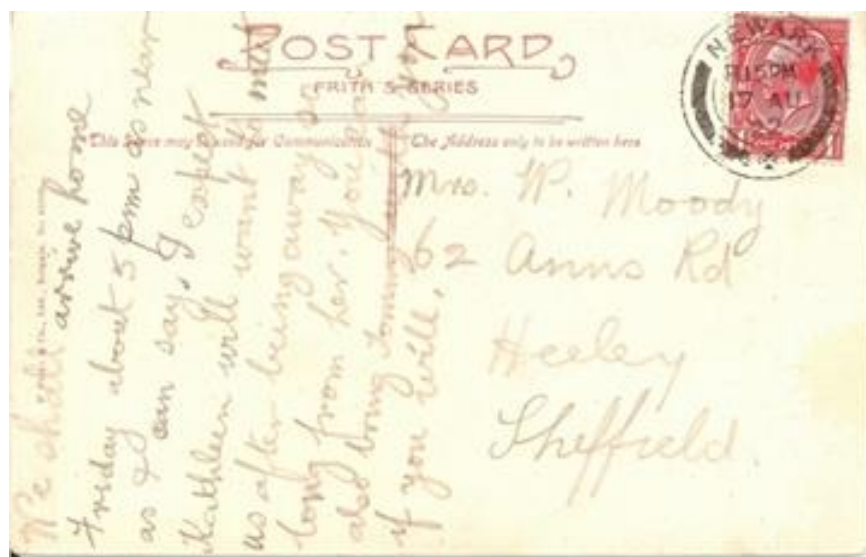 POST CARD
FRITH'S SERIES
This Space may be used for Communication
The Address only to be written here
NEWARK
8.15PM
17 AU
We shall arrive home
Friday about 5 pm as near
as I can say, I expect
Kathleen will want to meet
us after being away so
long from her. You can
also bring Tommy with you
if you will.
Mrs. W. Moody
62 Anns Rd
Heeley
Sheffield.